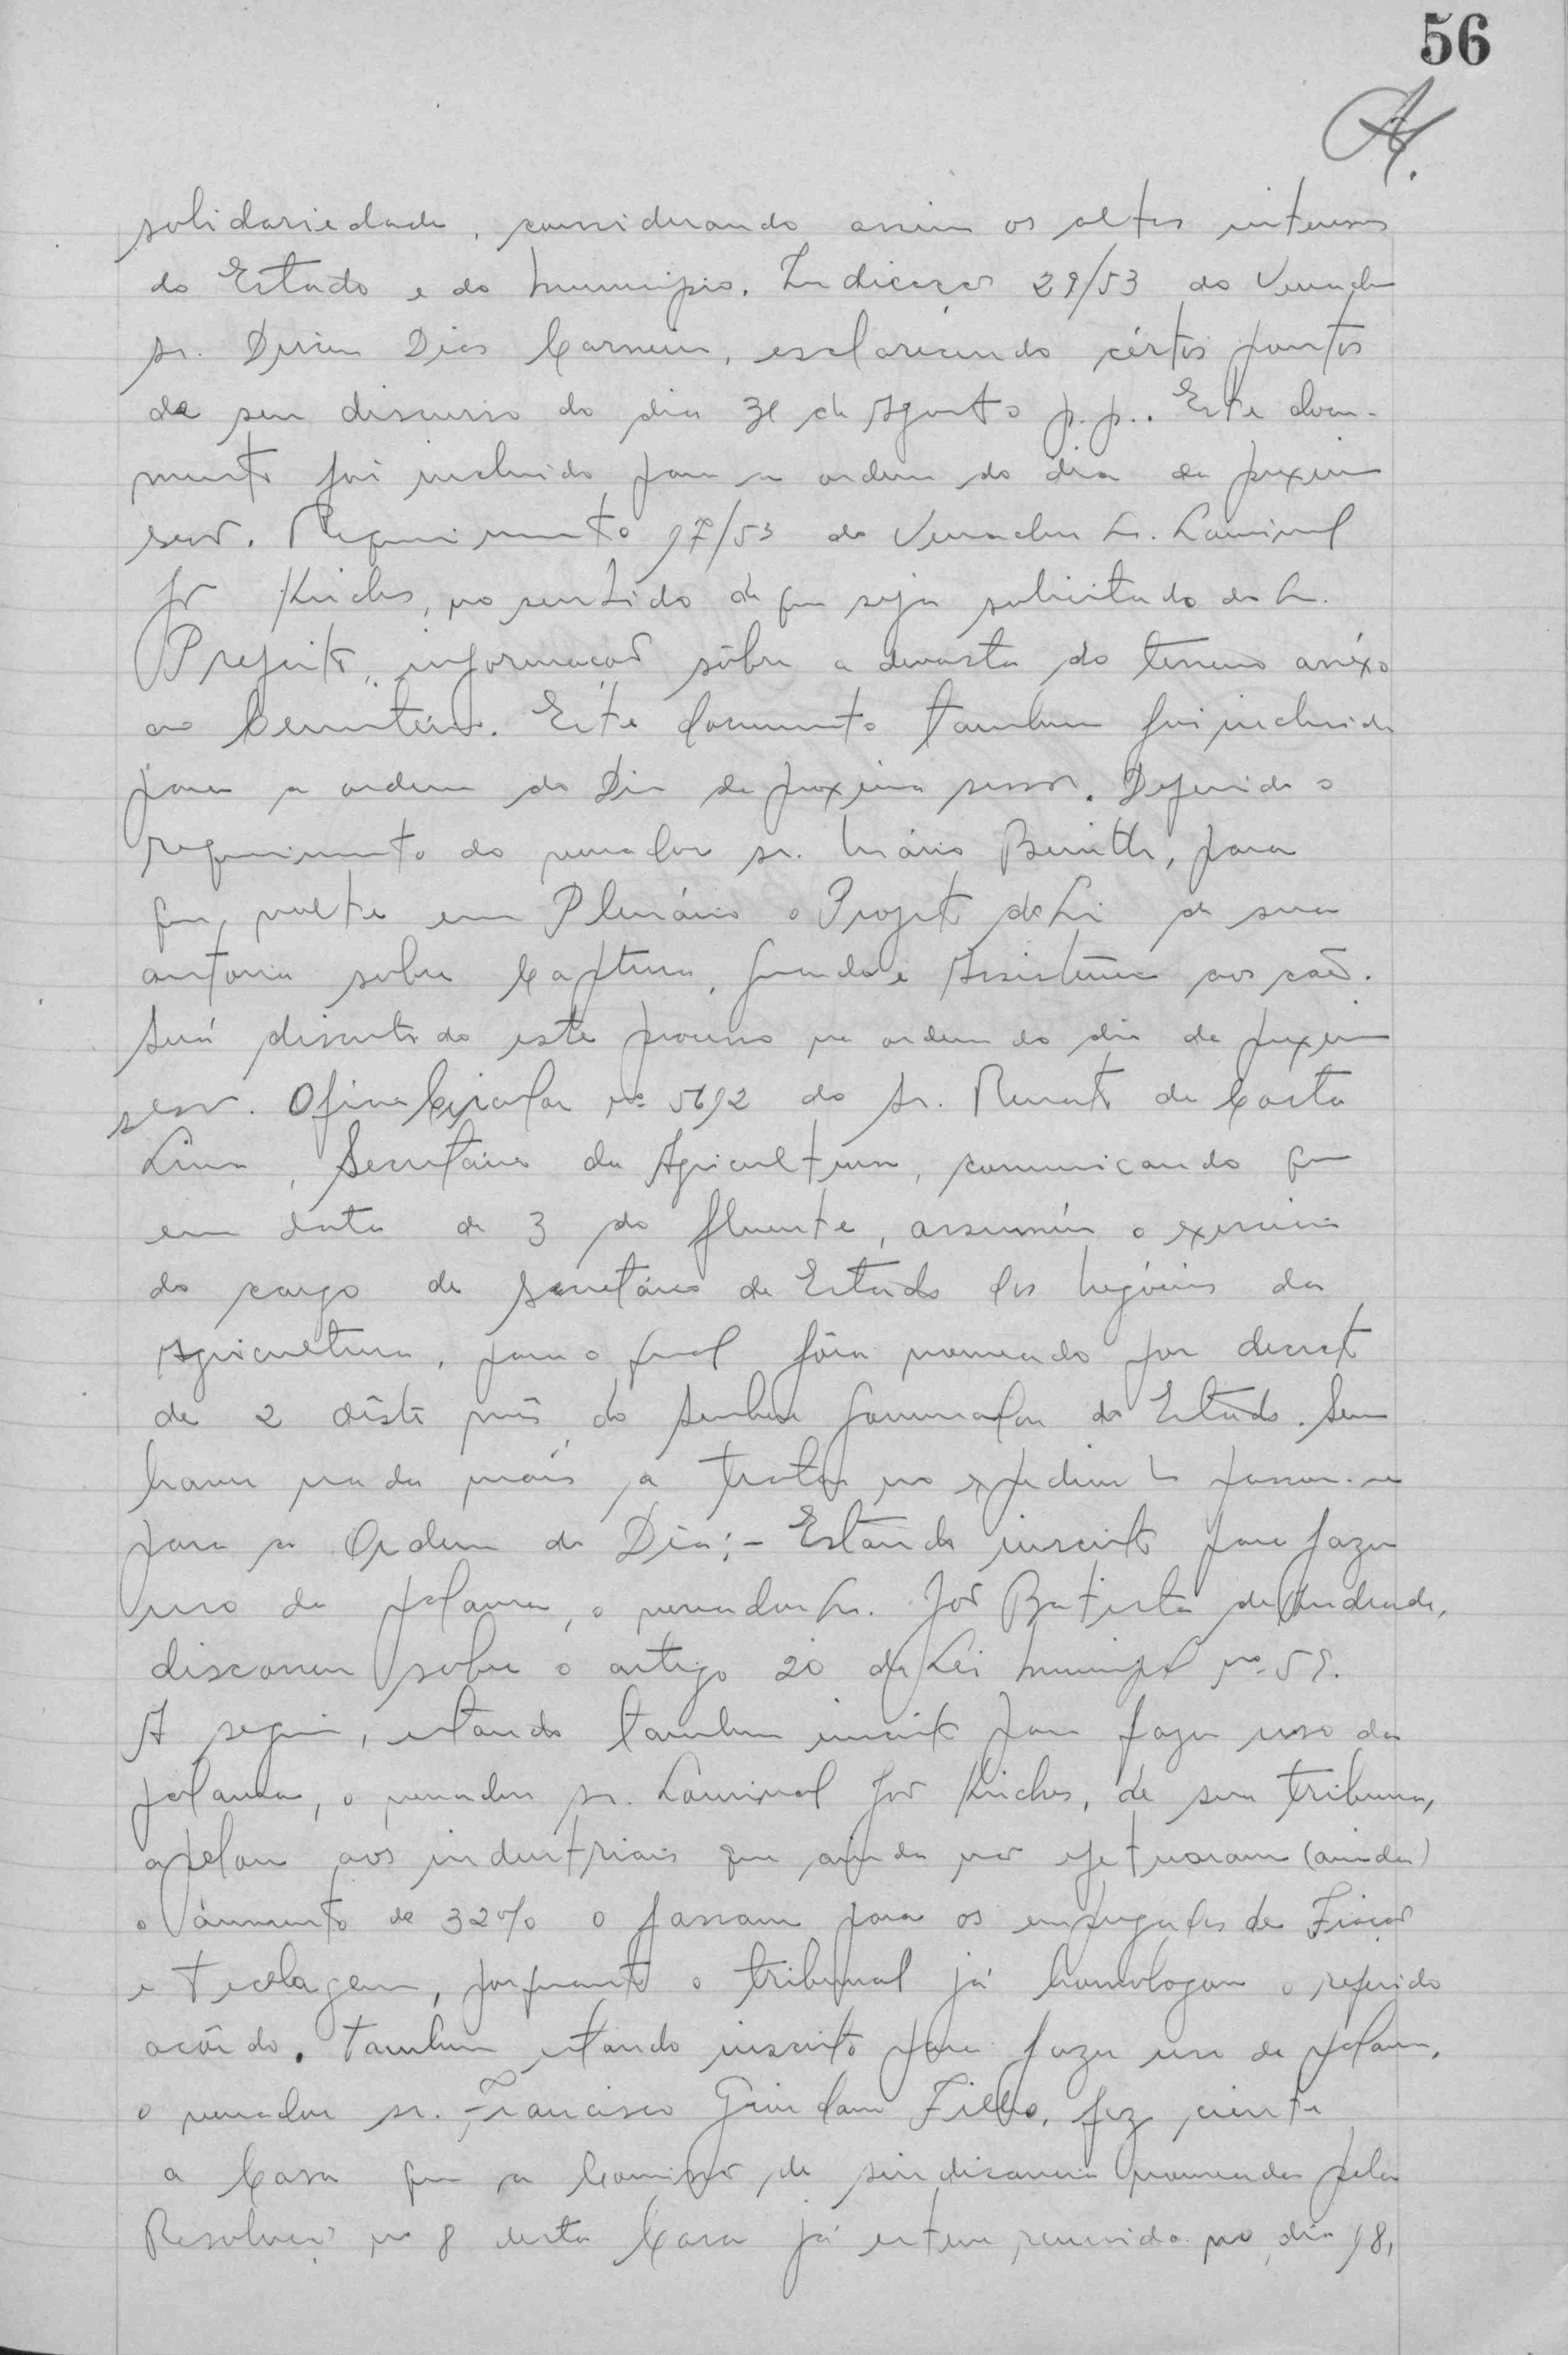 56
solidariedade, considerando assim os altos interesses
do Estado e do Municipio. Indicação 29/53 do Vereador
sr. Dias Carneiro, esclarecendo cértos pontos
de seu discurso do dia 31 de Agosto p.p.. Este docu-
mento foi incluido para a ordem do dia da proxima
sessão. Requerimento 17/53 do Vereador Sr. Lourival
José Kriches, no sentido de que seja solicitado do Sr.
Prefeito, informação sôbre a do terreno anéxo
ao Cemitério. Este documento tambem foi incluido
para a ordem do Dia da proxima sessão. Deferido o
requerimento do vereador sr. Mário, para
que volte em Plenário o Projeto de Lei de sua
autoria sobre Captura, Guarda e Assistência aos cães.
Será discutido este processo na ordem do dia da proxima
sessão. Oficio Circular nº 5692 do Sr. Renato da Costa
Lima, Secretário da Agricultura, comunicando que
em data de 3 do fluente, assumiu o exercicio
do cargo de Secretário de Estado dos Negócios da
Agricultura, para o qual fôra nomeado por decreto
de 2 dêste mês do Senhor Governador do Estado. Sem
haver nada mais a tratar no expediente passou-se
para a Ordem do Dia:- Estando inscrito para fazer
uso da palavra, o vereador Sr. José Batista de Andrade,
discorreu sobre o artigo 20 da Lei Municipal nº 59.
A seguir, estando tambem inscrito para fazer uso da
palavra, o vereador sr. Lourival José Kriches, de sua tribuna,
apelou aos industriais que ainda não efetuaram (ainda)
o aumento de 32% o façam para os empregados de Fiação
e Tecelagem, porquanto o tribunal já homologou o referido
acôrdo. Tambem estando inscrito para fazer uso da palavra,
o vereador sr. Francisco Filho, fez ciente
a Casa que a Comissão de sindicancia nomeada pela
Resolução nº 8 desta Casa já esteve reunida no dia 18,